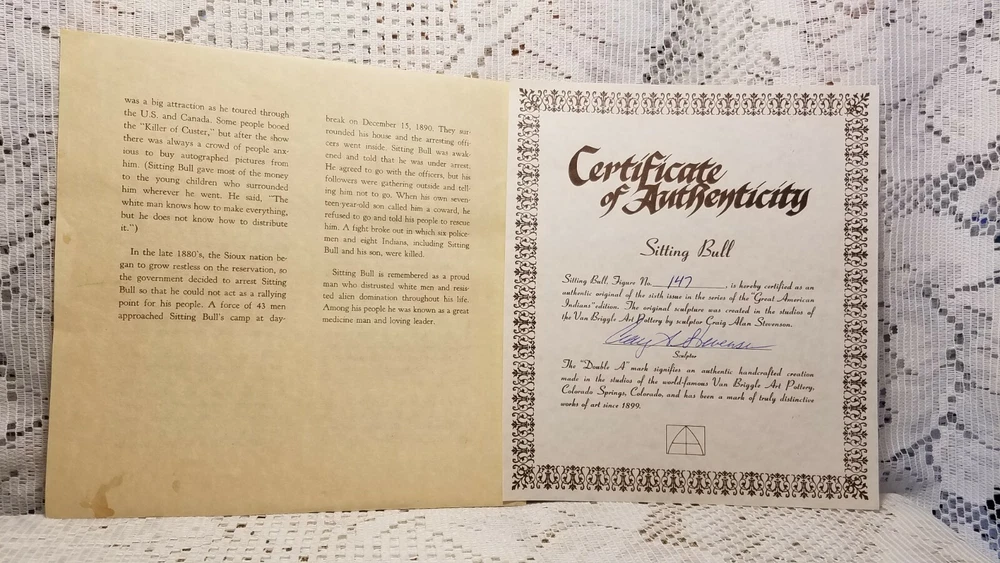 was a big attraction as he toured through
the U.S. and Canada. Some people booed
the "Killer of Custer," but after the show
there was always a crowd of people anx-
ious to buy autographed pictures from
him. (Sitting Bull gave most of the money
to the young children who surrounded
him wherever he went. He said, "The
white man knows how to make everything,
but he does not know how to distribute
it.")
In the late 1880's, the Sioux nation be-
gan to grow restless on the reservation, so
the government decided to arrest Sitting
Bull so that he could not act as a rallying
point for his people. A force of 43 men
approached Sitting Bull's camp at day-
break on December 15, 1890. They sur-
rounded his house and the arresting offi-
cers went inside. Sitting Bull was awak-
ened and told that he was under arrest.
He agreed to go with the officers, but his
followers were gathering outside and tell-
ing him not to go. When his own seven-
teen-year-old son called him a coward, he
refused to go and told his people to rescue
him. A fight broke out in which six police-
men and eight Indians, including Sitting
Bull and his son, were killed.
Sitting Bull is remembered as a proud
man who distrusted white men and resis-
ted alien domination throughout his life.
Among his people he was known as a great
medicine man and loving leader.
Certificate
of Authenticity
Sitting Bull
Sitting Bull, Figure No. 147, is hereby certified as an
authentic original of the sixth issue in the series of the "Great American
Indians" edition. The original sculpture was created in the studios of
the Van Briggle Art Pottery by sculptor Craig Alan Stevenson.
Craig A Stevenson
Sculptor
The "Double A" mark signifies an authentic handcrafted creation
made in the studios of the world-famous Van Briggle Art Pottery,
Colorado Springs, Colorado, and has been a mark of truly distinctive
works of art since 1899.